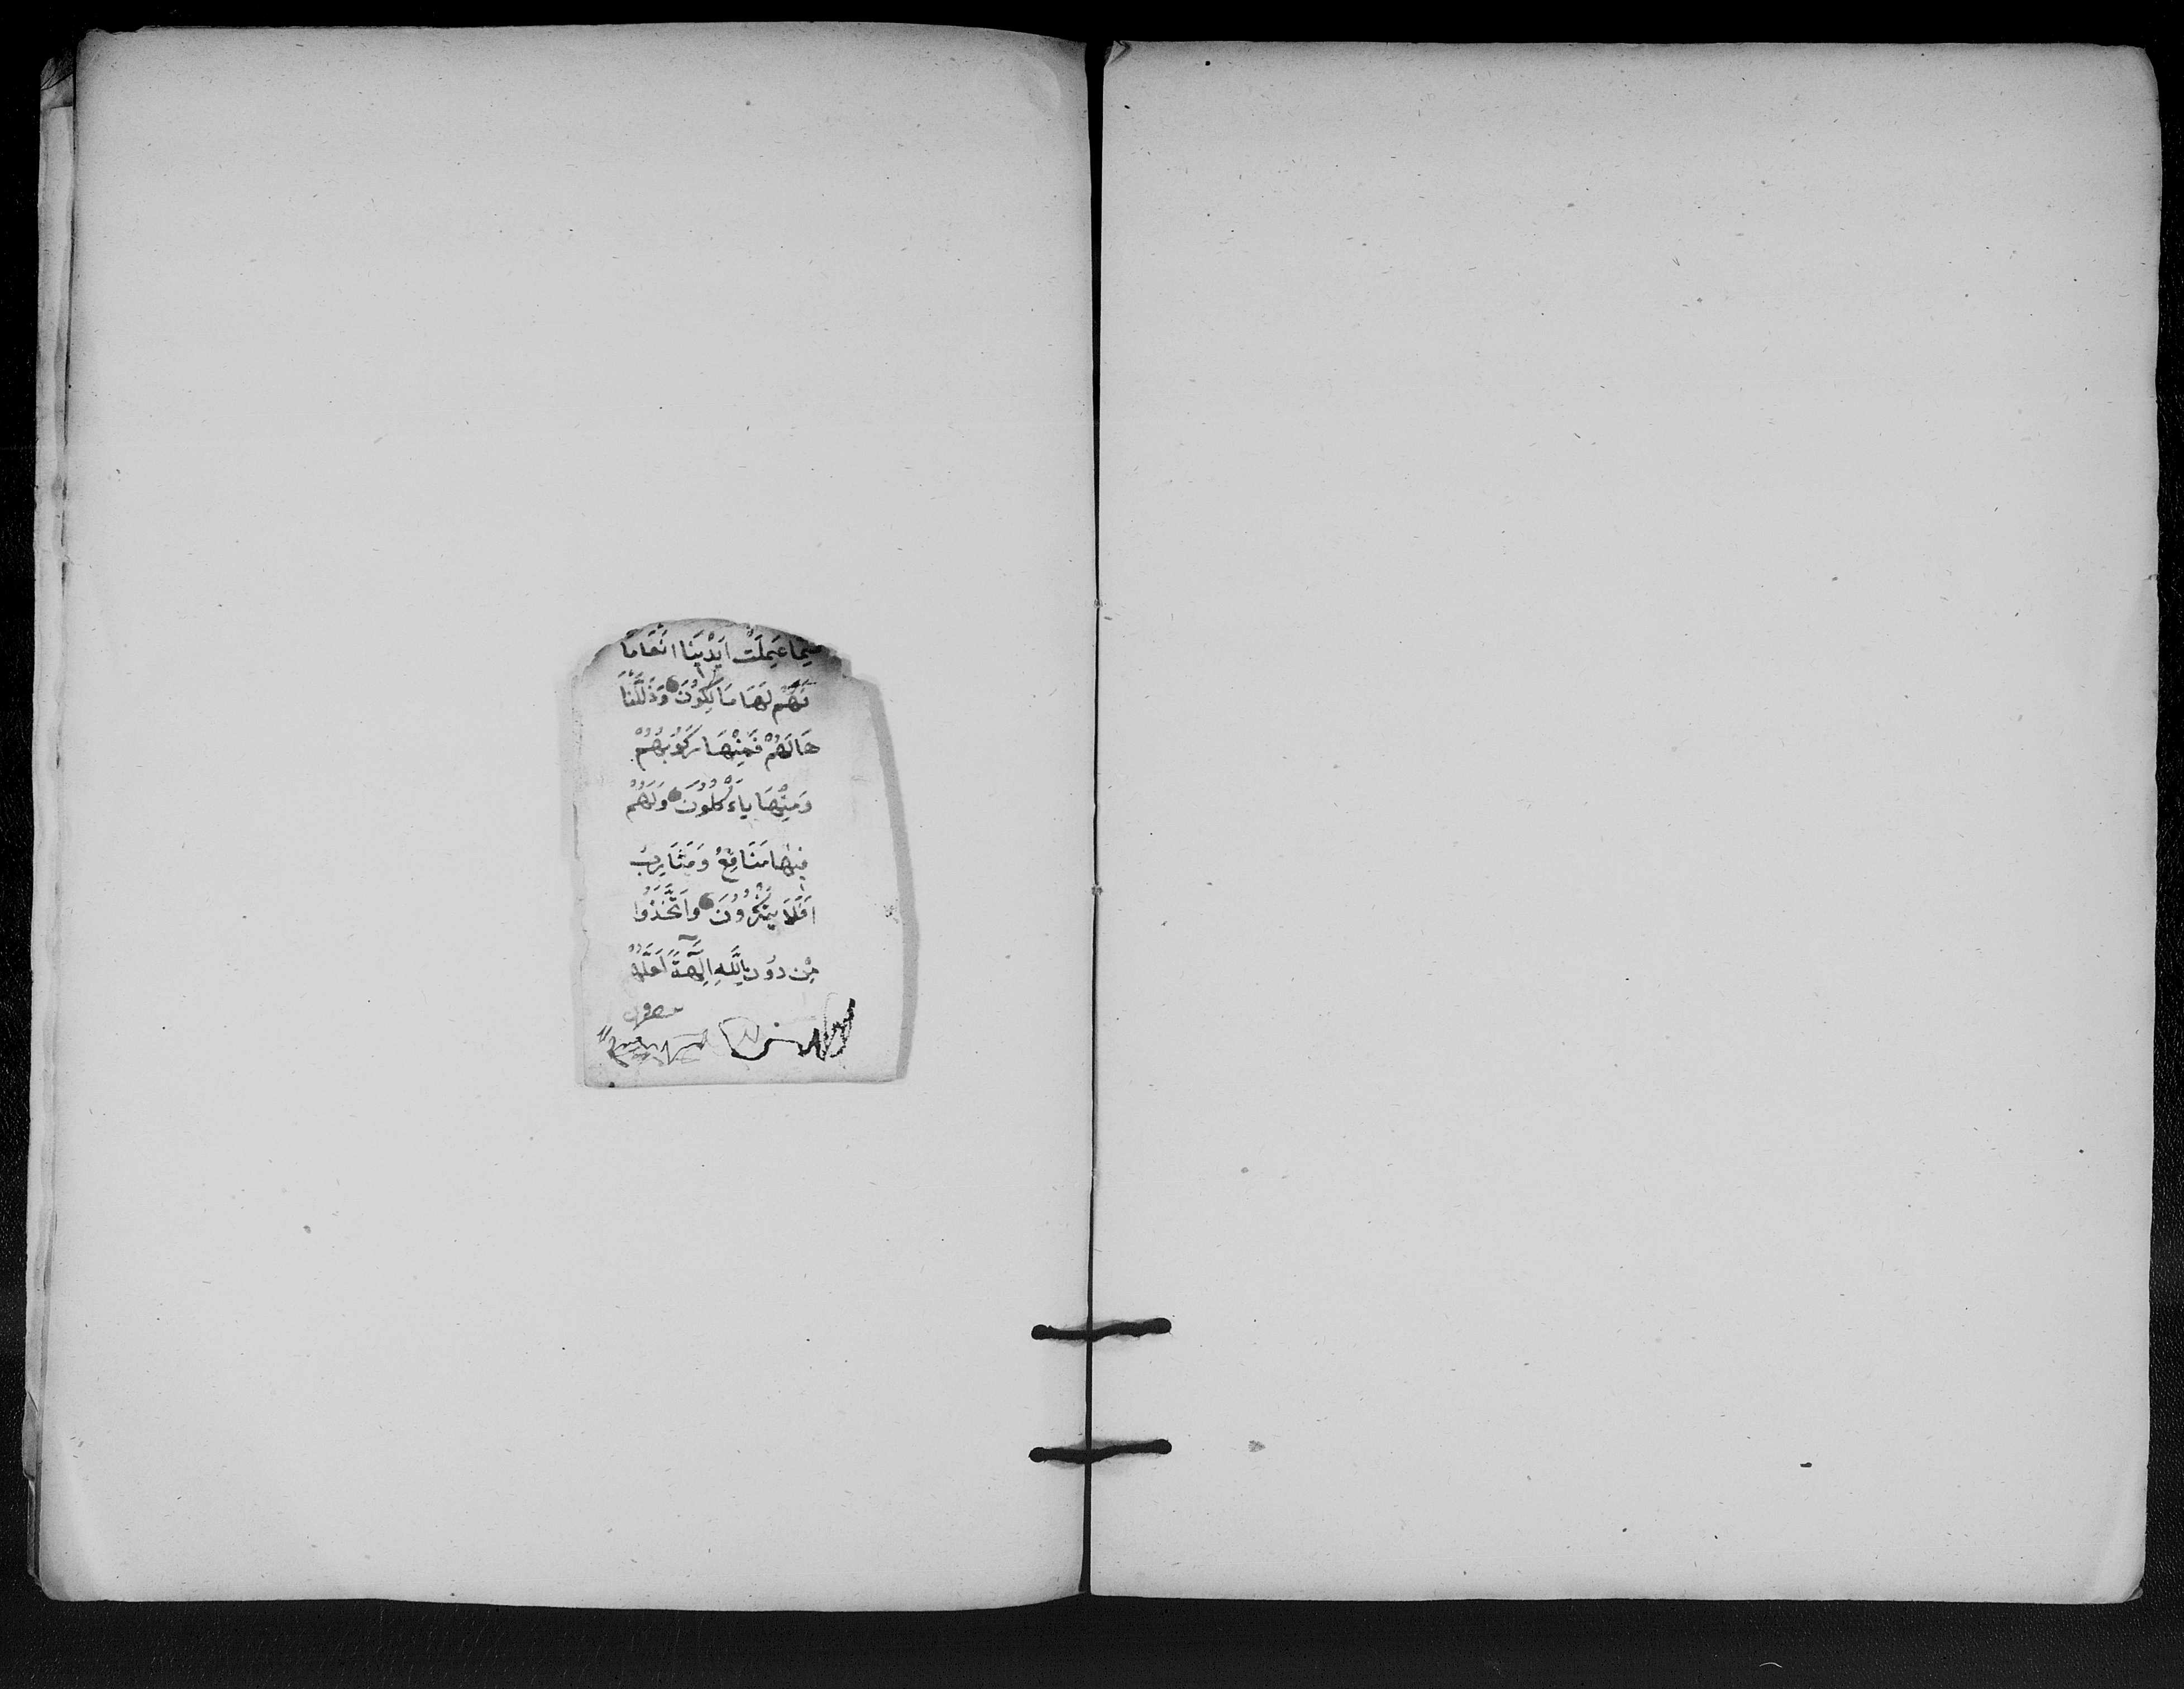 مِمَّا عَمِلَتْ اَيْدِيْنَا اَنْعَامًا
فَهُمْ لَهَا مَالِكُوْنَ وَذَلَّلْنَا
هَا لَهُمْ فَمِنْهَا رَكُوْبُهُمْ
وَمِنْهَا يَاءْكُلُوْنَ وَلَهُمْ
فِيْهَا مَنَافِعُ وَمَشَارِبُ
اَفَلَا يَشْكُرُوْنَ وَاتَّخَذُوْا
مِنْ دُوْنِ اللَّهِ اٰلِهَةً لَعَلَّهُمْ